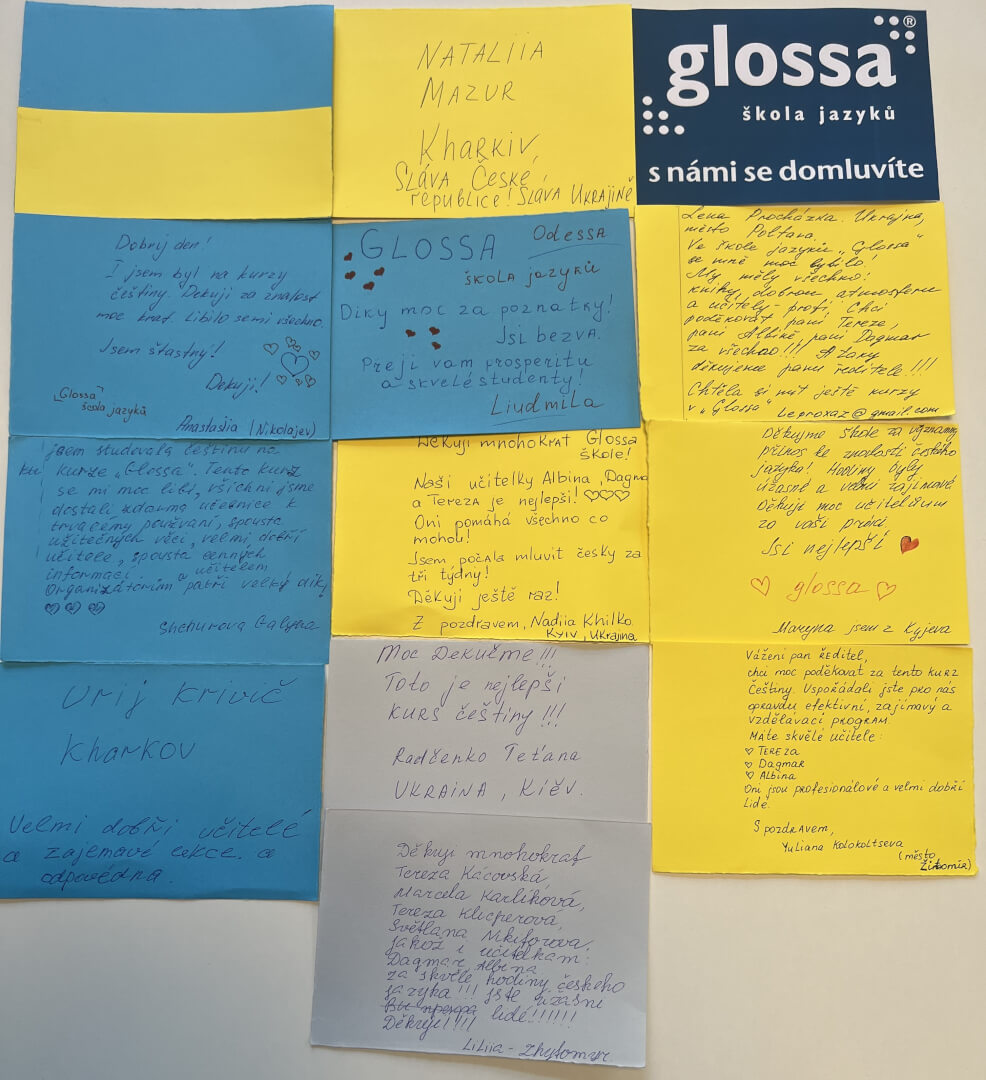 NATALIIA
MAZUR
KHARKIV,
SLÁVA ČESKÉ
republice! SLÁVA UKRAJINĚ
glossa®
škola jazyků
s námi se domluvíte
Dobrij den!
I jsem byl na kurzy
češtiny. Dekuji za znalost
moc krat. Libilo semi všechno.
Jsem šťastný!
Dekuji!
„Glossa"
škola jazyků
Anastasiia (Nikolajev)
GLOSSA Odessa
škola jazyků
Díky moc za poznatky!
Jsi bezva.
Přeji vam prosperitu
a skvelé studenty!
Liudmila
Lena Procházka. Ukrajna,
město Poltava.
Ve škole jazyků „Glossa"
se mně moc lybilo!
My měly všechno:
knihy, dobrou atmosferu
a učitely-profi. Chci
poděkovat paní Tereze,
paní Albině, paní Dagmar
za všechno!!! A Taky
děkujeme panu řediteli!!!
Chtěla si mít ještě kurzy
v „Glossa" Leproxaz@gmail.com
jsem studovala češtinu na
kurze „Glossa". Tento kurz
se mi moc líbí, všichni jsme
dostali zdarma učebnice k
trvácému používání, spousta
užitečných věcí, velmi dobří
učitele, spousta cenných
informací. učitelem
Organizátorům patří velký díky
Shchurova Galyna
Děkuji mnohokrat Glossa
škole!
Naši učitelky Albina, Dagma
a Tereza je nejlepši!
Oni pomáhá všechno co
mohou!
Jsem počala mluvit česky za
tři týdny!
Děkuji ještě raz!
Z pozdravem, Nadiia Khilko.
Kyiv, Ukrajina
Děkujme škole za významný
přínos ke znalosti českého
jazyka! Hodiny byly
úžasné a velmi zajímavé
Děkuji moc učitelům
za vaši práci,
Jsi nejlepší
glossa
Maryna jsem z Kyjeva
Urij Krivič
Kharkov
Velmi dobři učitelé
a zajemavé lekce. a
odpovědna.
Moc Dekučme!!!
Toto je nejlepši
KURS češtiny!!!
Radčenko Teťana
UKRAINA, Kiěv.
Vážení pan ředitel,
chci moc poděkovat za tento kurz
Češtiny. Uspořádali jste pro nás
opravdu efektivní, zajímavý a
vzdělávací program.
Máte skvělé učitele:
Tereza
Dagmar
Albina
Oni jsou profesionálové a velmi dobří
Lidé.
S pozdravem,
Yuliana Kolokoltseva
(město
Žitomir)
Děkuji mnohokrat
Tereza Kacovská,
Marcela Karlíková,
Tereza Klicperová,
Světlana Nikiforova,
jakož i učitelkam:
Dagmar, Albina
za skvělé hodiny českeho
jazyka!!! jste užasni
lidé!!!!!!
Děkuji!!!!
Liliia - Zhytomyr